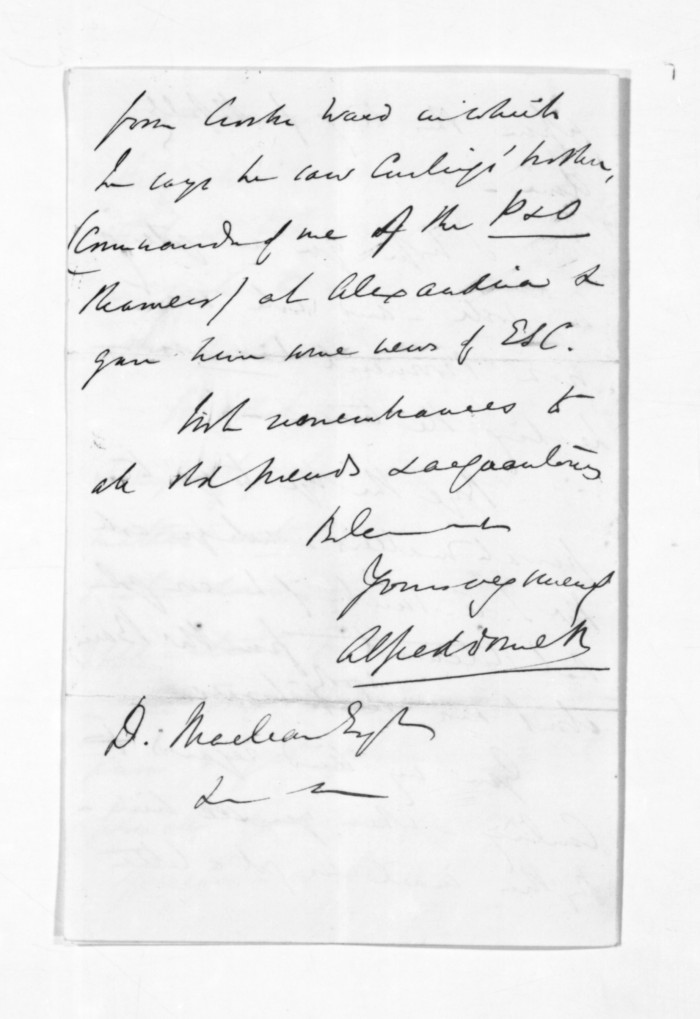 from Crosbie Ward in which
he says he saw Curling's brother,
(Commander of one of the P & O
Steamers) at Alexandria &
gave him some news of ESC.
With remembrances to
all old friends & acquaintances
Believe me
Yours very sincerely
Alfred Domett
D. Maclean Esqr
&c &c